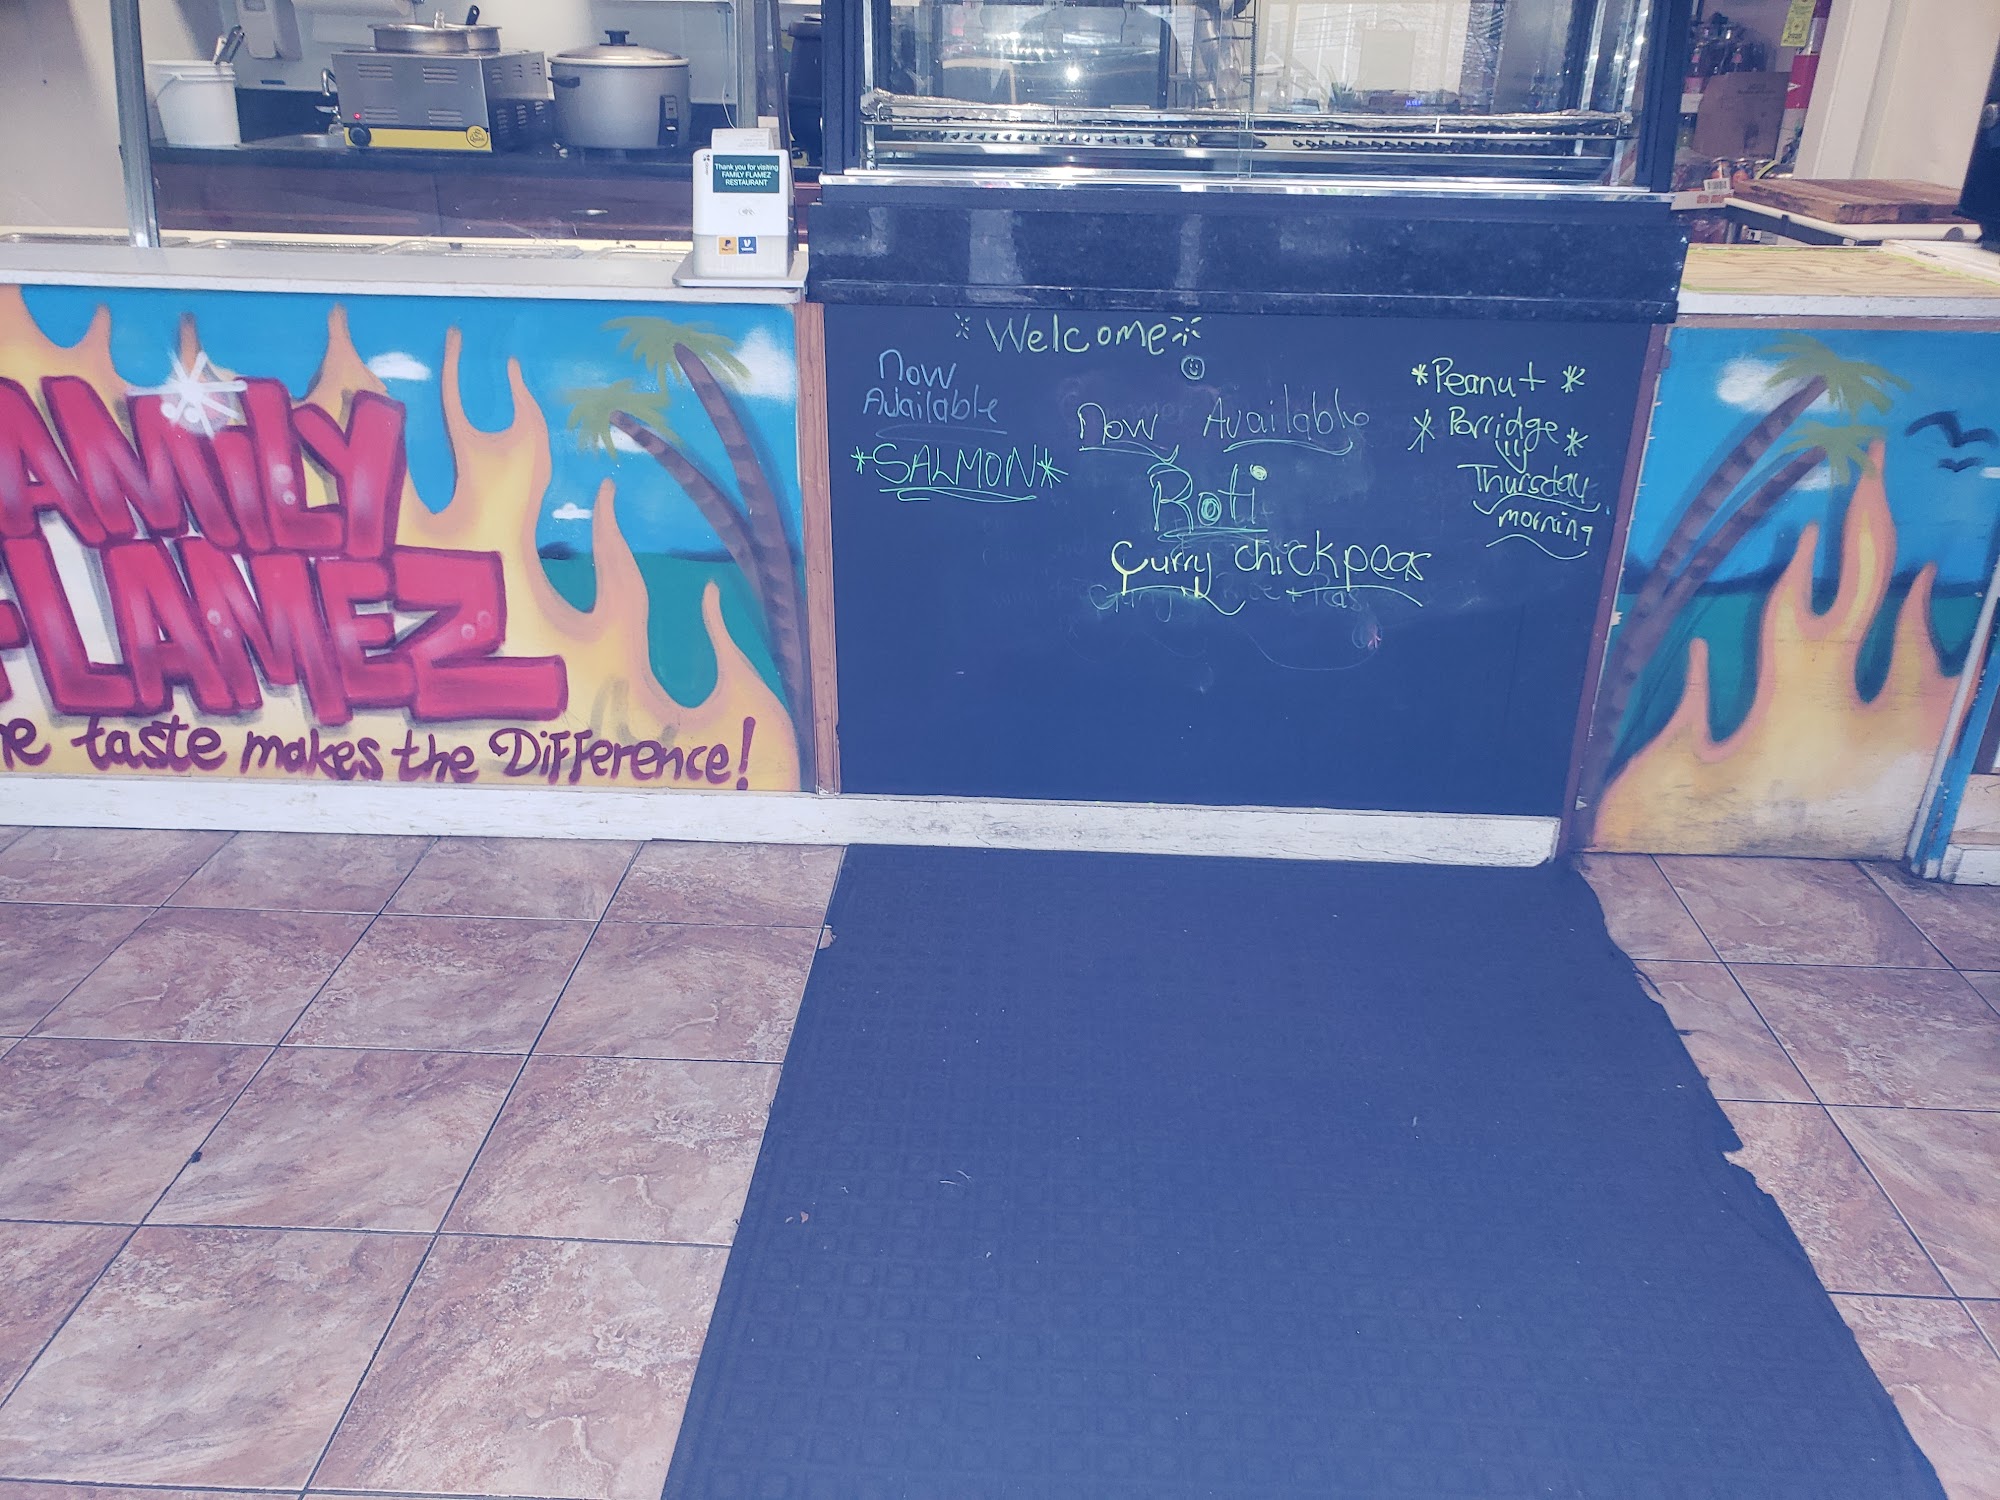 Thank you for visiting
FAMILY FLAMEZ
RESTAURANT
AMILY
FLAMEZ
he taste makes the Difference!
Welcome
Now
Available
*SALMON*
Now Available
Roti
Curry chickpeas
*Peanut*
*Porridge*
Thursday
morning